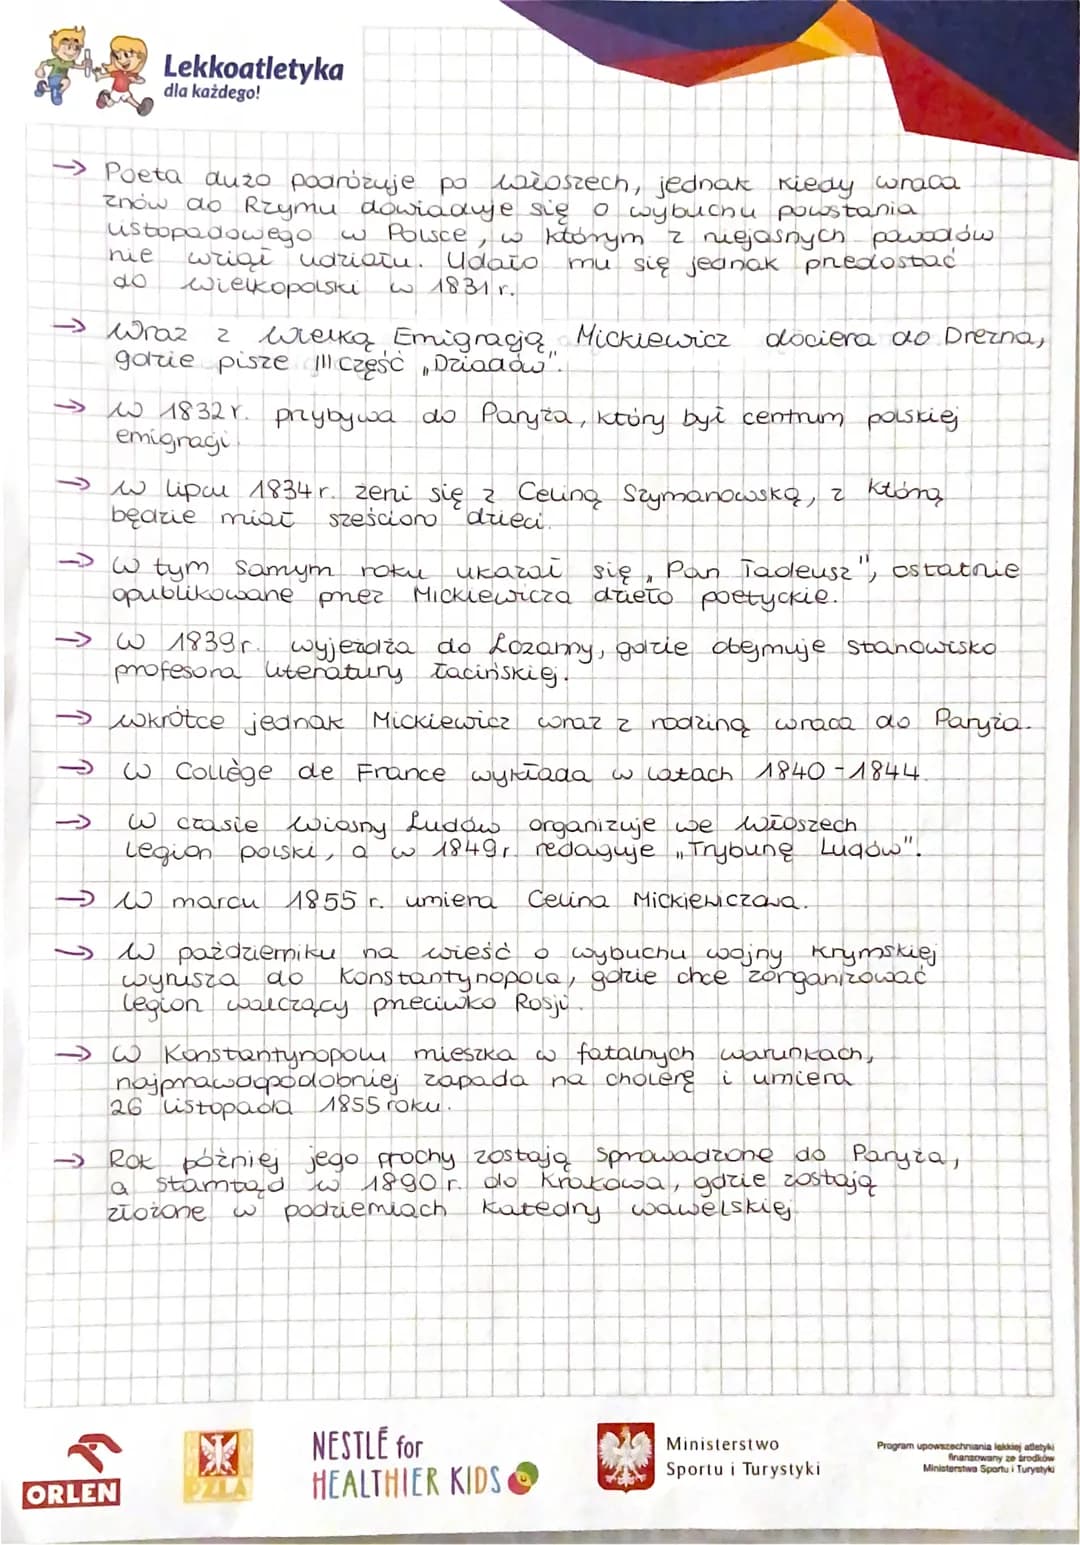 Lekkoatletyka
dla każdego!
→ Poeta dużo podróżuje po Włoszech, jednak kiedy wraca
znów do Rzymu dowiaduje się o wybuchu powstania
listopadowego w Polsce, w którym z niejasnych powodów
nie wziął udziału. Udało mu się jednak przedostać
do Wielkopolski w 1831 r.
→ Wraz z Wielką Emigracją Mickiewicz dociera do Drezna,
gdzie pisze III część „Dziadów".
→ W 1832 r. przybywa do Paryża, który był centrum polskiej
emigracji.
→ W lipcu 1834 r. żeni się z Celiną Szymanowską, z którą
będzie miał sześcioro dzieci.
→ W tym samym roku ukazał się „Pan Tadeusz", ostatnie
opublikowane przez Mickiewicza dzieło poetyckie.
→ W 1839 r. wyjeżdża do Lozanny, gdzie obejmuje stanowisko
profesora literatury łacińskiej.
→ Wkrótce jednak Mickiewicz wraz z rodziną wraca do Paryża.
→ W Collège de France wykłada w latach 1840-1844.
→ W czasie Wiosny Ludów organizuje we Włoszech
Legion polski, a w 1849 r. redaguje „Trybunę Ludów".
→ W marcu 1855 r. umiera Celina Mickiewiczowa.
→ W październiku na wieść o wybuchu wojny krymskiej
wyrusza do Konstantynopola, gdzie chce zorganizować
legion walczący przeciwko Rosji.
→ W Konstantynopolu mieszka w fatalnych warunkach,
najprawdopodobniej zapada na cholerę i umiera
26 listopada 1855 roku.
→ Rok później jego prochy zostają sprowadzone do Paryża,
a stamtąd w 1890 r. do Krakowa, gdzie zostają
złożone w podziemiach Katedry wawelskiej.
ORLEN
PZLA
NESTLÉ for
HEALTHIER KIDS
Ministerstwo
Sportu i Turystyki
Program upowszechniania lekkiej atletyki
finansowany ze środków
Ministerstwa Sportu i Turystyki